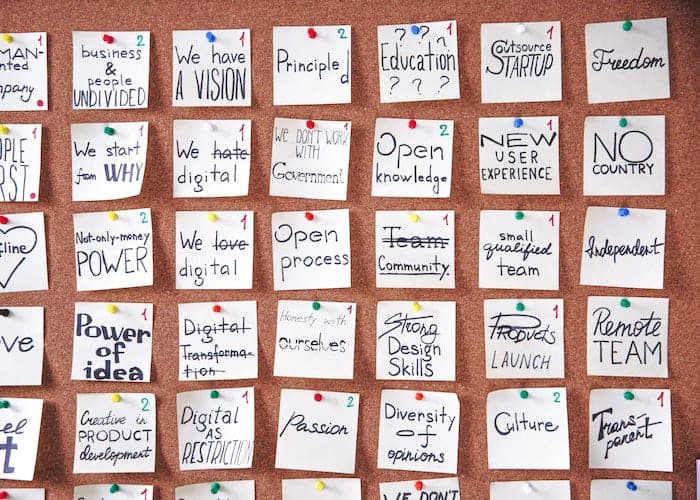 MAN- 1
nted
mpany
business 2
&
people
UNDIVIDED
We have 1
A VISION
Principled 2
Education 1
? ? ? ? ?
Outsource 1
STARTUP
Freedom
OPLE 1
RST
We start 1
from WHY
We hate 1
digital
WE DON'T WORK 1
WITH
Government
Open 2
knowledge
NEW 1
USER
EXPERIENCE
NO
COUNTRY
ffline 1
Not-only-money 2
POWER
We love 1
digital
Open
process
Team 1
Community
small 1
qualified
team
Independent
ove
Power 1
of
idea
Digital 1
Transforma-
tion
Honesty with 1
ourselves
Strong 2
Design
Skills
Products 1
LAUNCH
Remote
TEAM
el 2
t
Creative in 2
PRODUCT
development
Digital 1
AS
RESTRICTION
Passion 2
Diversity 1
of
opinions
Culture 2
Trans- 1
parent
WE DON'T